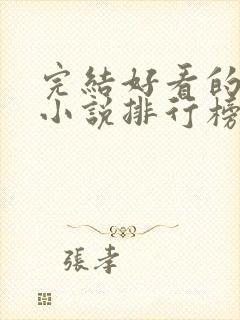 完結好看的
小說排行榜
張孝